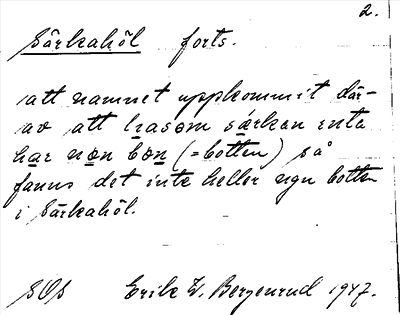 2.
Särkahöl forts.
att namnet uppkommit där-
av att lrasom särkan inta
har non bon (=botten) så
fanns det inte heller ngn botten
i Särkahöl.
SOS Erik W. Bergenrud 1947.